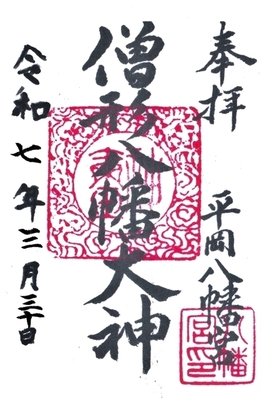 奉拝
平岡八幡宮
僧形八幡大神
令和七年三月三十日